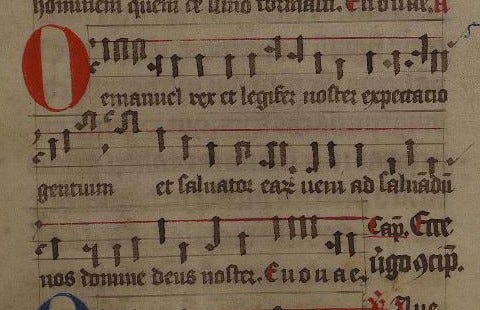 hominem quem de limo formasti. Euouae. A
O emanuel rex et legifer noster expectacio
gentium et saluator earꝝ ueni ad saluādū
nos domine deus noster. Euouae.
Cap. Ecce
ůgo ꝯcip.